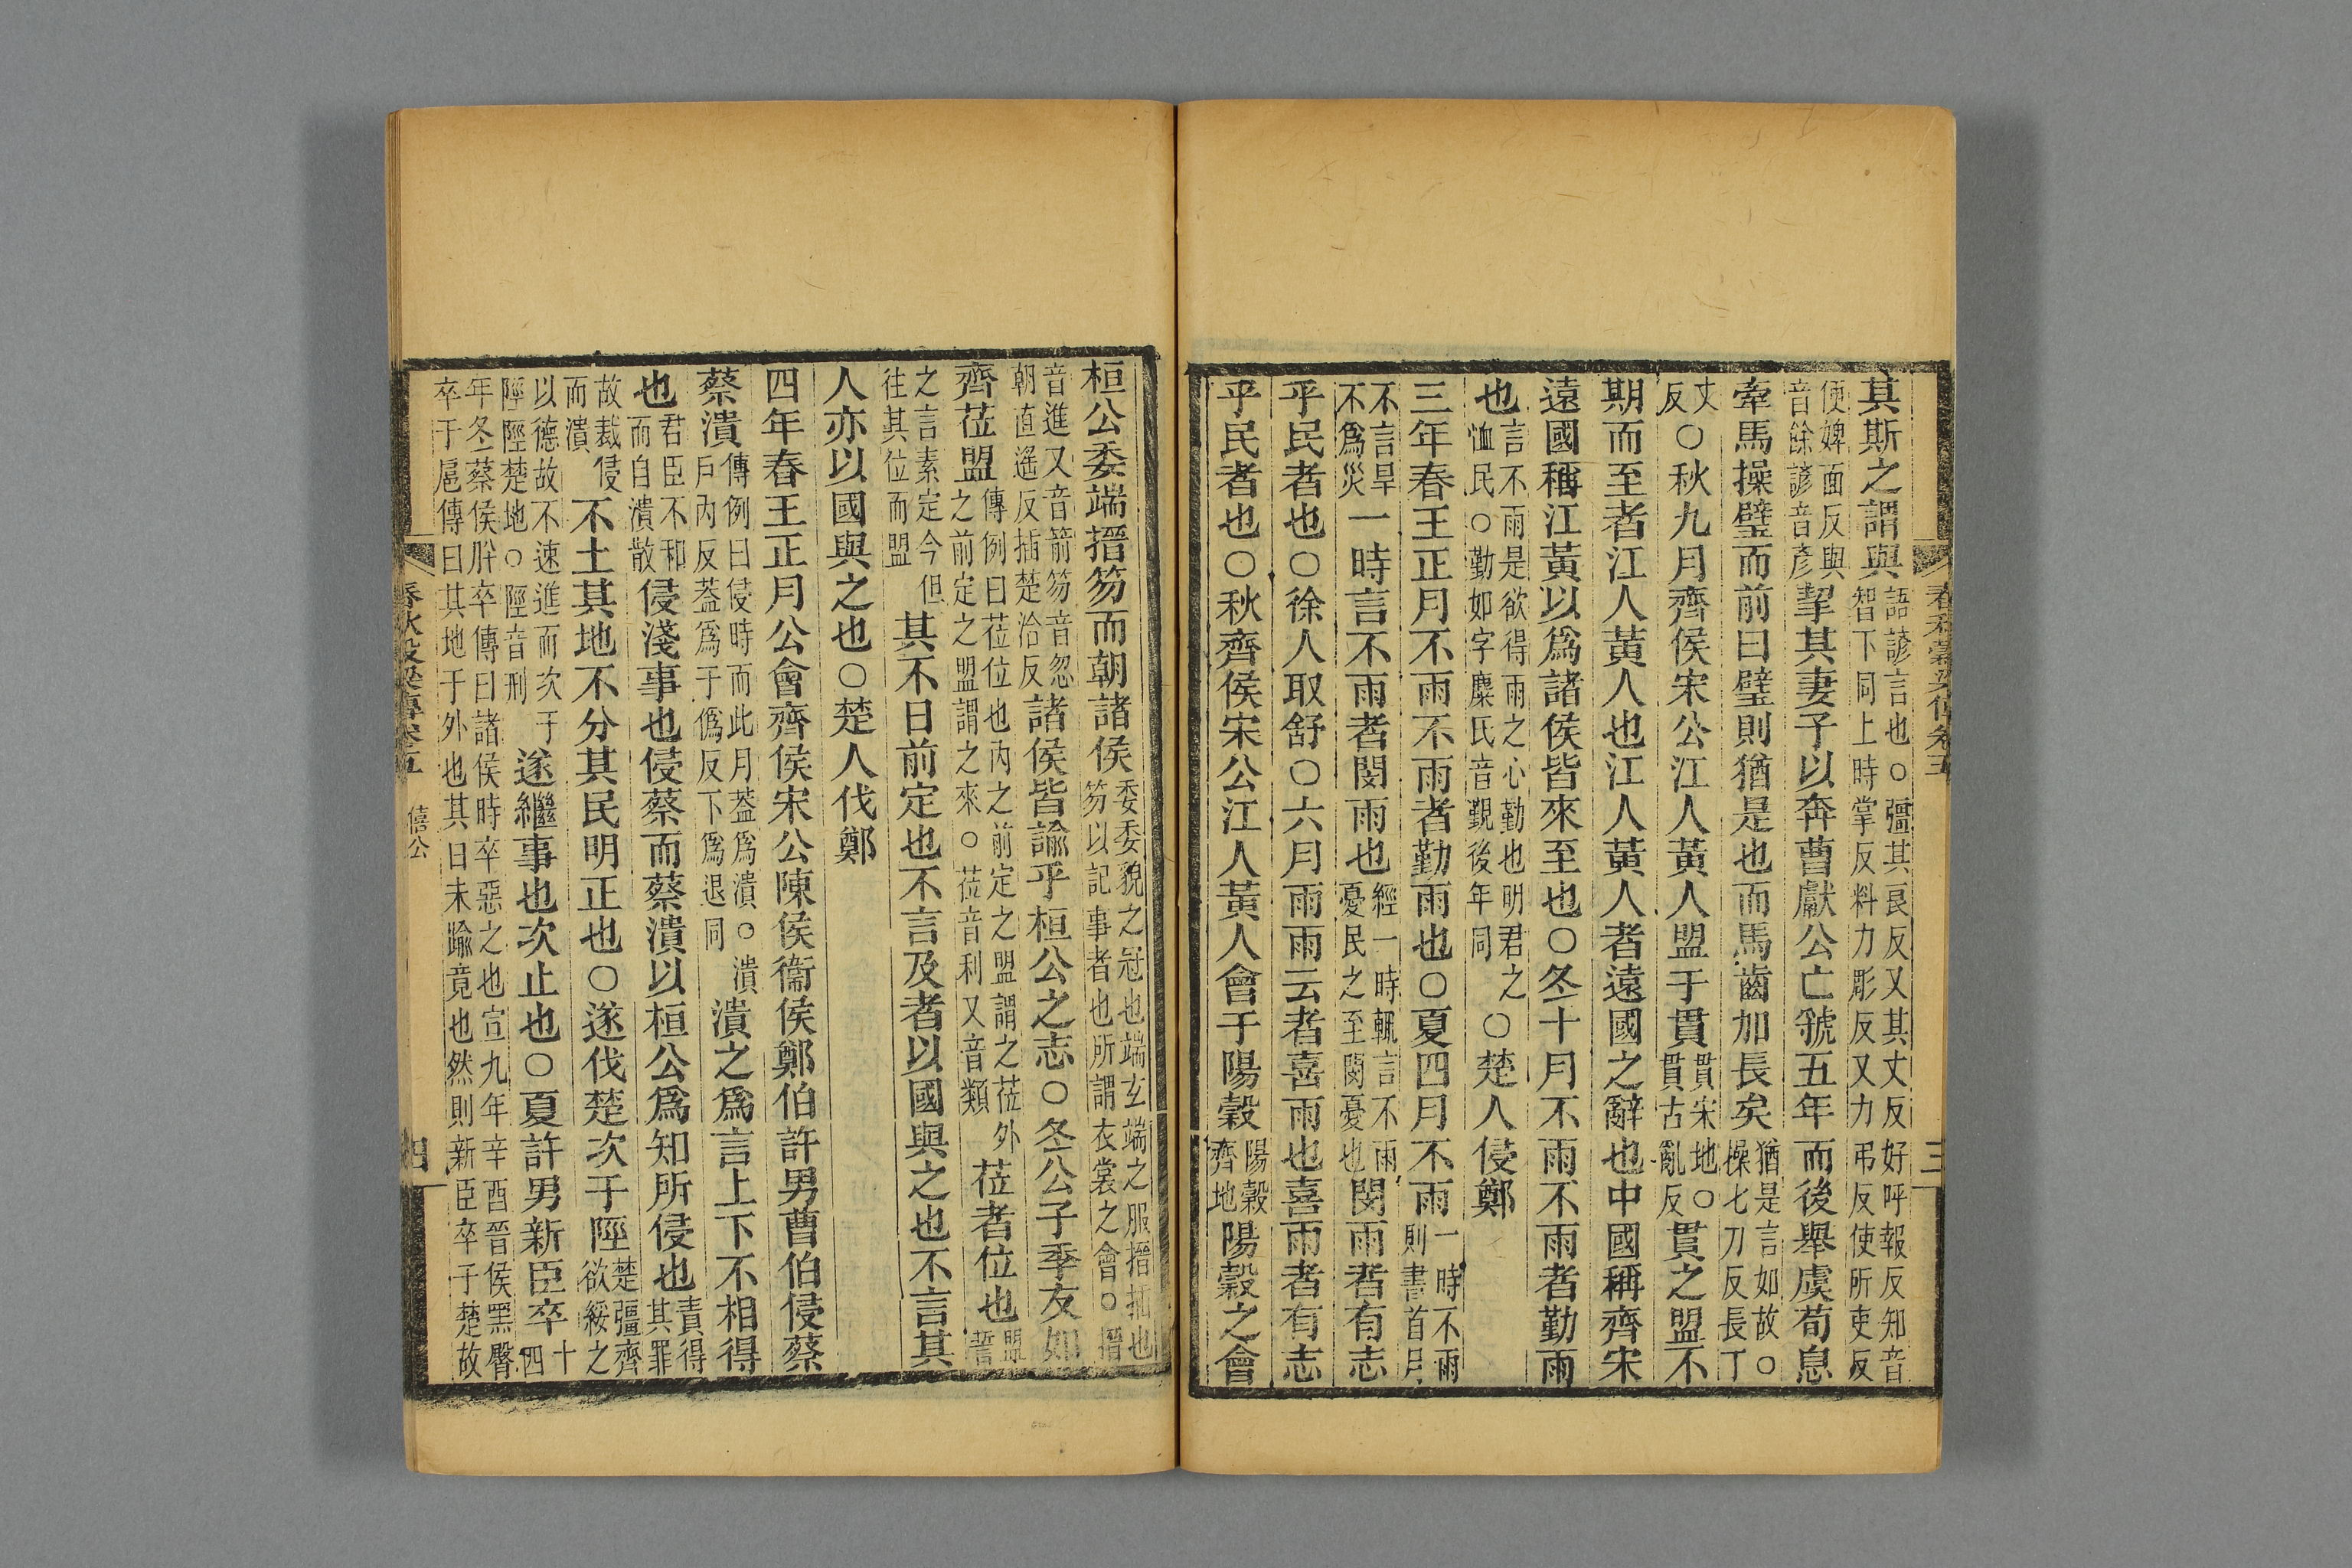 春秋穀梁傳卷五 三
其斯之謂與語諺言也○彊其良反又其丈反好呼報反知音智下同上時掌反料力彫反又力弔反使所吏反
便婢面反與音餘諺音彥挈其妻子以奔曹獻公亡虢五年而後舉虞荀息
牽馬操璧而前曰璧則猶是也而馬齒加長矣猶是言如故○操七刀反長丁
丈反○秋九月齊侯宋公江人黃人盟于貫貫宋地○貫古亂反貫之盟不
期而至者江人黃人也江人黃人者遠國之辭也中國稱齊宋
遠國稱江黃以爲諸侯皆來至也○冬十月不雨不雨者勤雨
也言不雨是欲得雨之心勤也明君之恤民○勤如字麋氏音覲後年同○楚人侵鄭
三年春王正月不雨不雨者勤雨也○夏四月不雨一時不雨則書首月
不言旱不爲災一時言不雨者閔雨也經一時輒言不雨憂民之至閔憂也閔雨者有志
乎民者也○徐人取舒○六月雨雨云者喜雨也喜雨者有志
乎民者也○秋齊侯宋公江人黃人會于陽穀陽穀齊地陽穀之會
桓公委端搢笏而朝諸侯委委貌之冠也端玄端之服搢插也笏以記事者也所謂衣裳之會○搢
音進又音箭笏音忽朝直遙反插楚洽反諸侯皆諭乎桓公之志○冬公子季友如
齊莅盟傳例曰莅位也內之前定之盟謂之莅外之前定之盟謂之來○莅音利又音類莅者位也盟誓
之言素定今但往其位而盟其不日前定也不言及者以國與之也不言其
人亦以國與之也○楚人伐鄭
四年春王正月公會齊侯宋公陳侯衞侯鄭伯許男曹伯侵蔡
蔡潰傳例曰侵時而此月蓋爲潰○潰戶內反蓋爲于僞反下爲退同潰之爲言上下不相得
也君臣不和而自潰散侵淺事也侵蔡而蔡潰以桓公爲知所侵也責得其罪
故裁侵而潰不土其地不分其民明正也○遂伐楚次于陘楚彊齊欲綏之
以德故不速進而次于陘陘楚地○陘音刑遂繼事也次止也○夏許男新臣卒十四
年冬蔡侯肸卒傳曰諸侯時卒惡之也宣九年辛酉晉侯黑臀卒于扈傳曰其地于外也其日未踰竟也然則新臣卒于楚故
春秋穀梁傳卷五 僖公 四